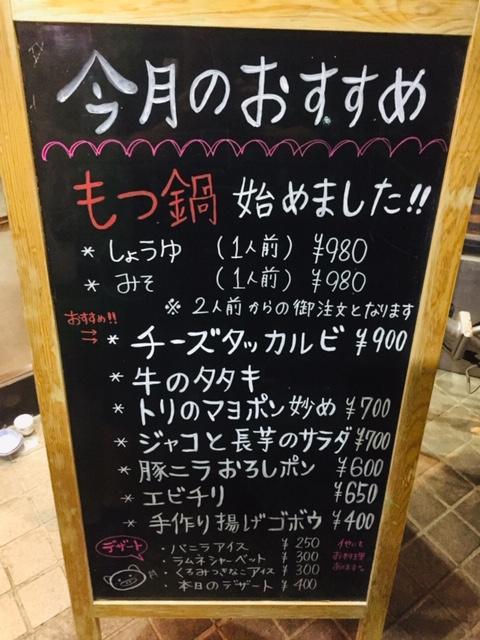 今月のおすすめ
もつ鍋 始めました!!
* しょうゆ (1人前) ¥980
* みそ (1人前) ¥980
※ 2人前からの御注文となります
おすすめ!!
→→ * チーズタッカルビ ¥900
* 牛のタタキ
* トリのマヨポン炒め ¥700
* ジャコと長芋のサラダ ¥700
* 豚ニラおろしポン ¥600
* エビチリ ¥650
* 手作り揚げゴボウ ¥400
デザート
・バニラアイス ¥250
・ラムネシャーベット ¥300
・くるみつきなこアイス ¥300
・本日のデザート ¥400
他にも
お料理
あります